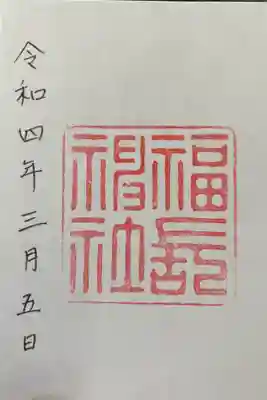 福長
神社
令和四年三月五日